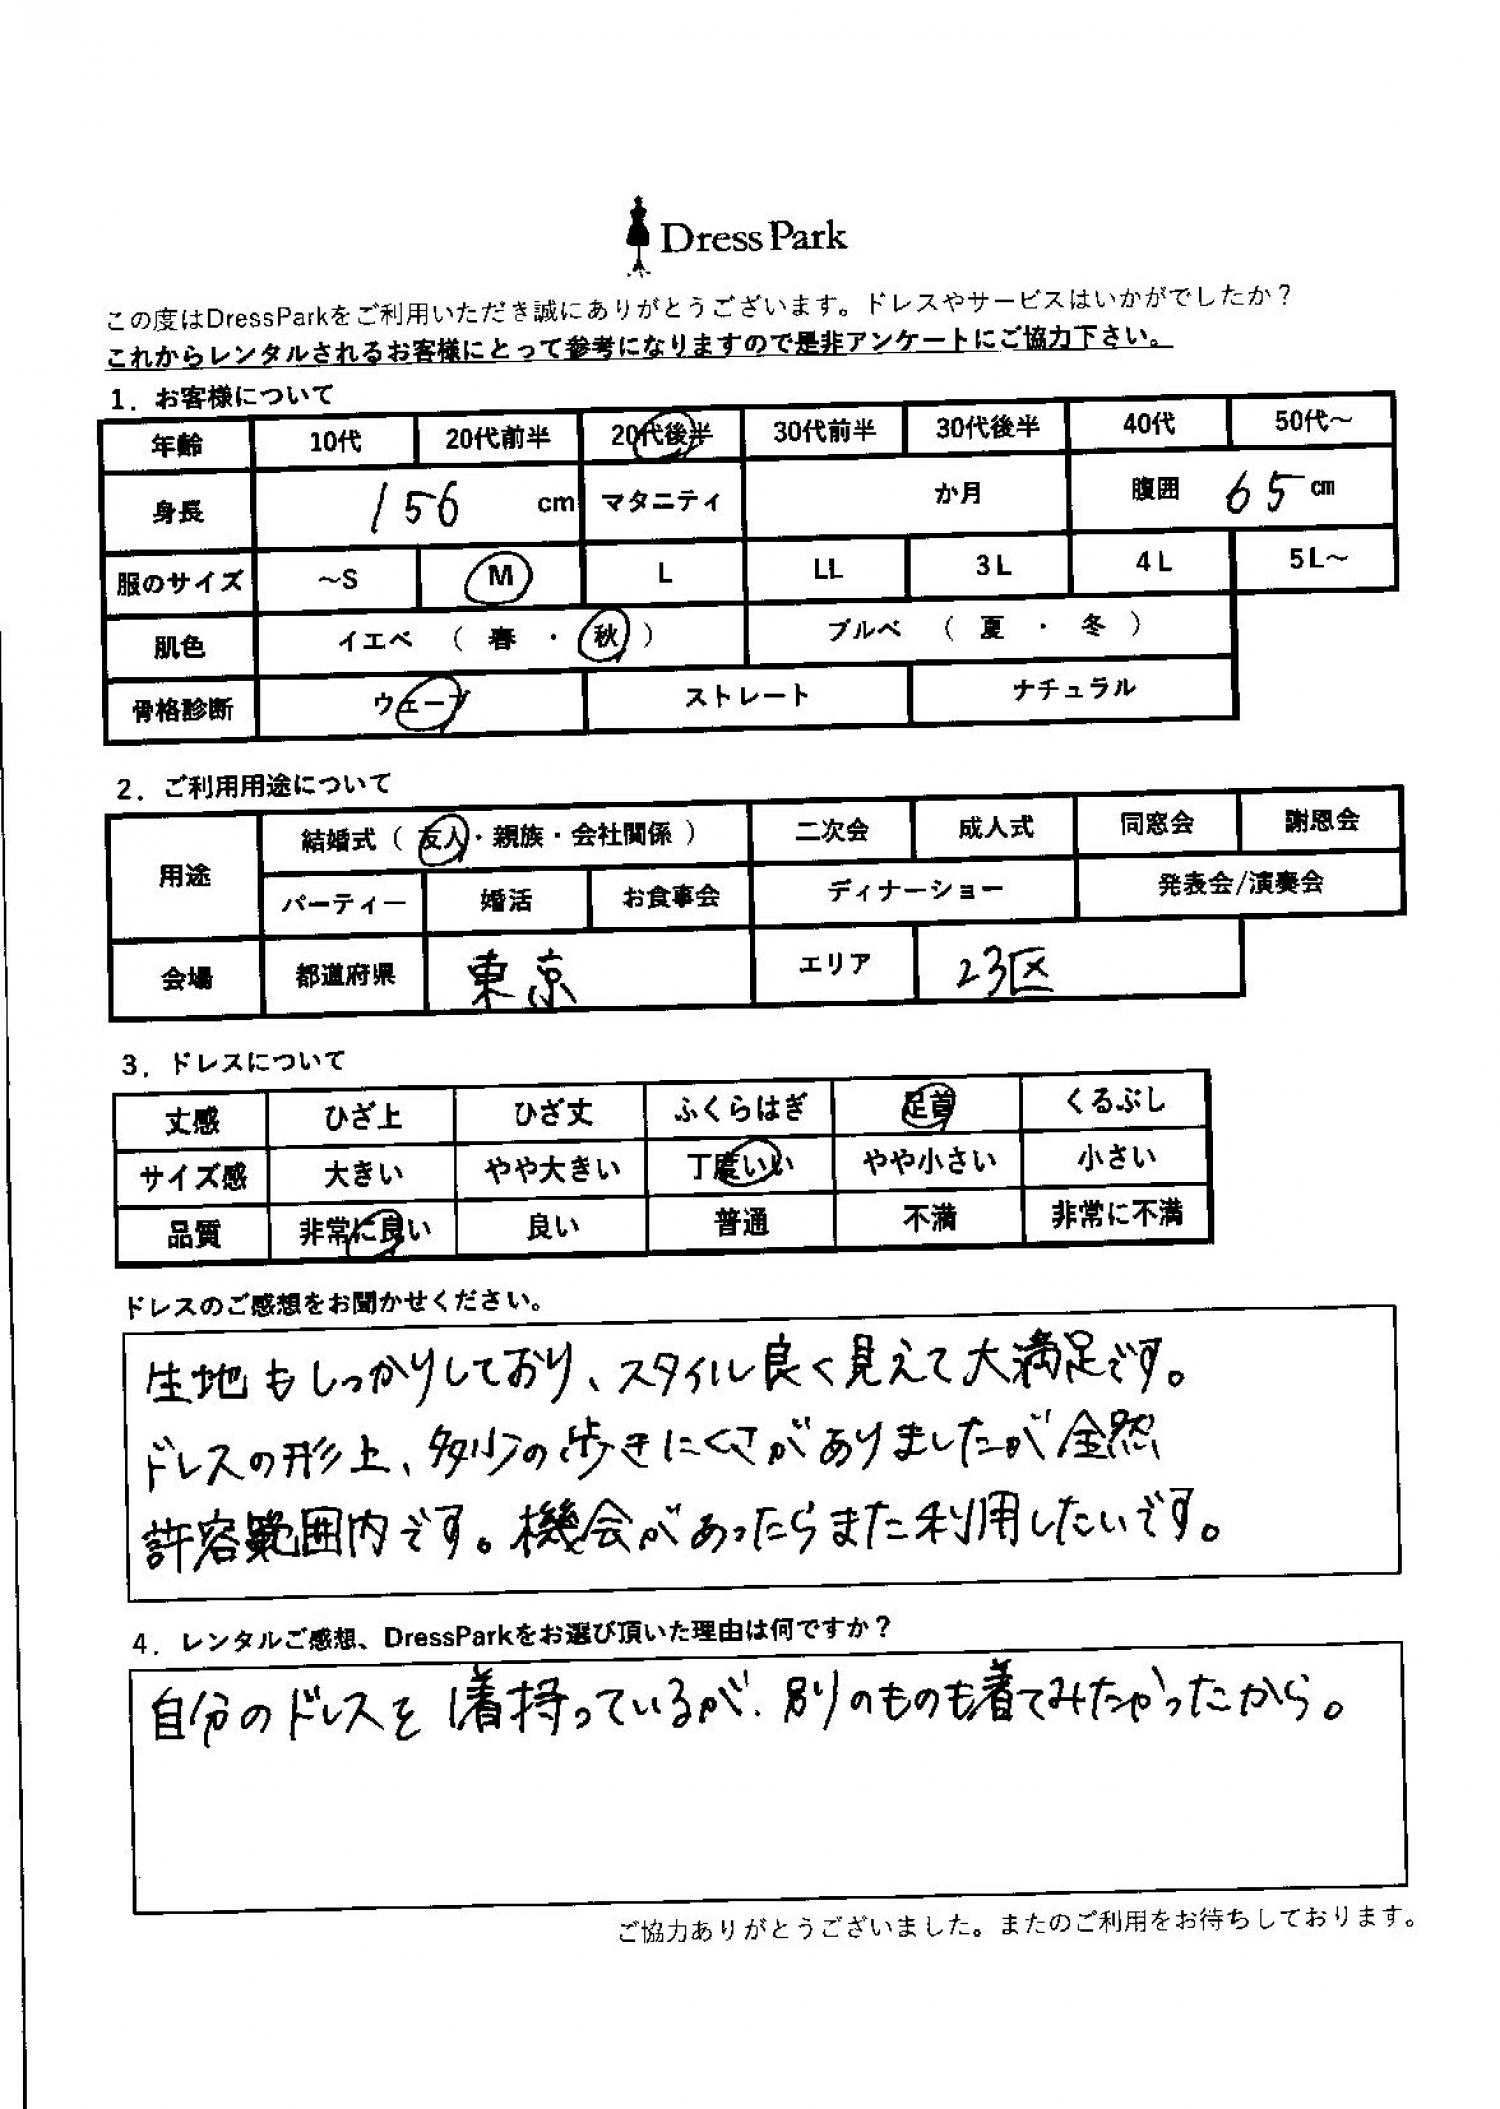 Dress Park
この度はDressParkをご利用いただき誠にありがとうございます。ドレスやサービスはいかがでしたか？
これからレンタルされるお客様にとって参考になりますので是非アンケートにご協力下さい。
1．お客様について
年齢 10代 20代前半 20代後半 30代前半 30代後半 40代 50代～
身長 156 cm マタニティ か月 腹囲 65 cm
服のサイズ ～S M L LL 3L 4L 5L～
肌色 イエベ （ 春 ・ 秋 ） ブルベ （ 夏 ・ 冬 ）
骨格診断 ウェーブ ストレート ナチュラル
2．ご利用用途について
用途 結婚式（ 友人・親族・会社関係 ） 二次会 成人式 同窓会 謝恩会
パーティー 婚活 お食事会 ディナーショー 発表会/演奏会
会場 都道府県 東京 エリア 23区
3．ドレスについて
丈感 ひざ上 ひざ丈 ふくらはぎ 足首 くるぶし
サイズ感 大きい やや大きい 丁度いい やや小さい 小さい
品質 非常に良い 良い 普通 不満 非常に不満
ドレスのご感想をお聞かせください。
生地もしっかりしており、スタイル良く見えて大満足です。
ドレスの形上、多少の歩きにくさがありましたが全然
許容範囲内です。機会があったらまた利用したいです。
4．レンタルご感想、DressParkをお選び頂いた理由は何ですか？
自分のドレスを1着持っているが、別のものも着てみたかったから。
ご協力ありがとうございました。またのご利用をお待ちしております。